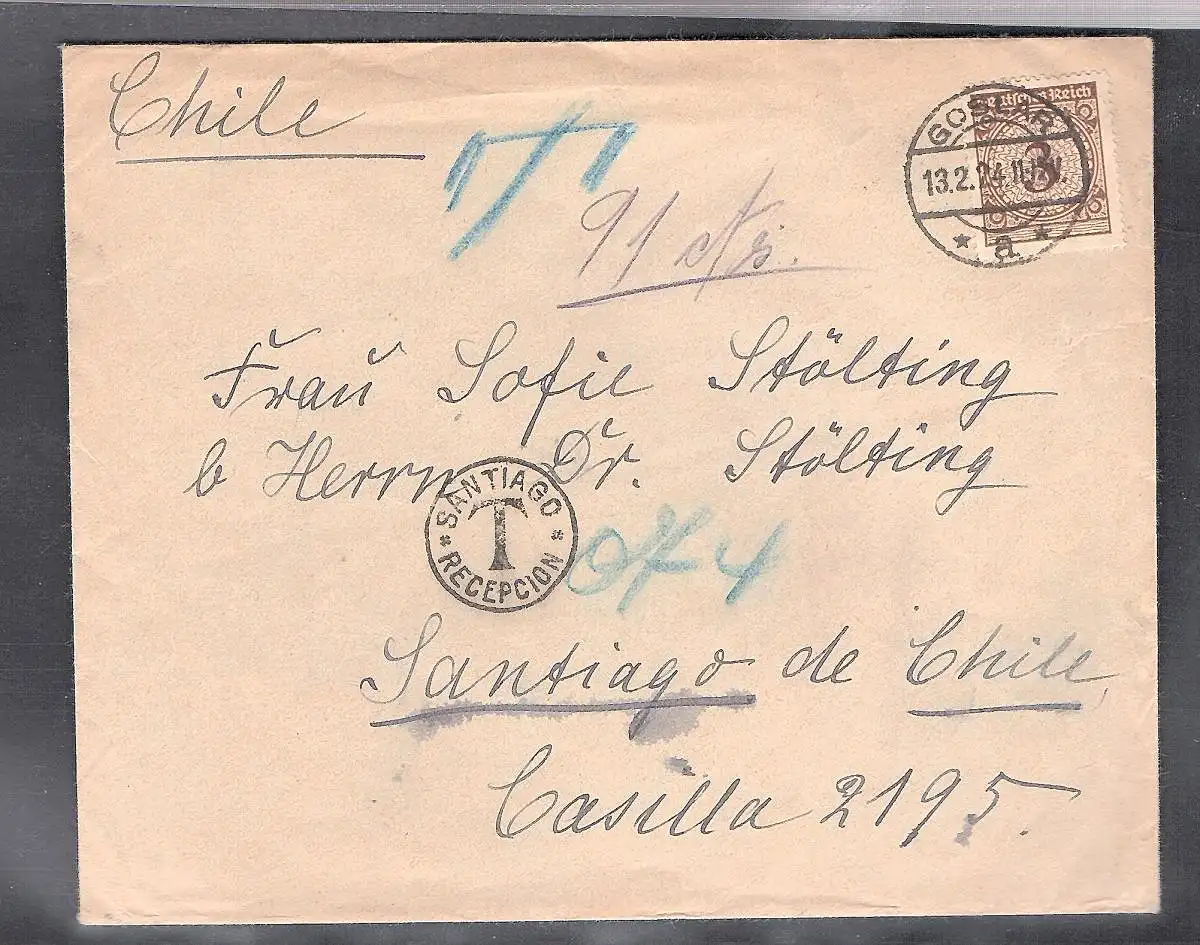 Chile
Deutsches Reich
3
GOSLAR
13.2.24. 11-12V.
* a *
T
91 cts.
Frau Sofie Stölting
b Herrn Dr. Stölting
* SANTIAGO *
T
RECEPCION
Santiago de Chile,
Casilla 2195.